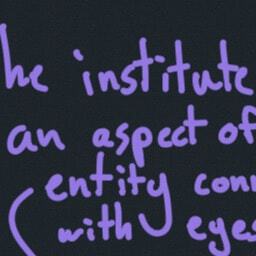 he institute
an aspect of
entity conn
with eyes